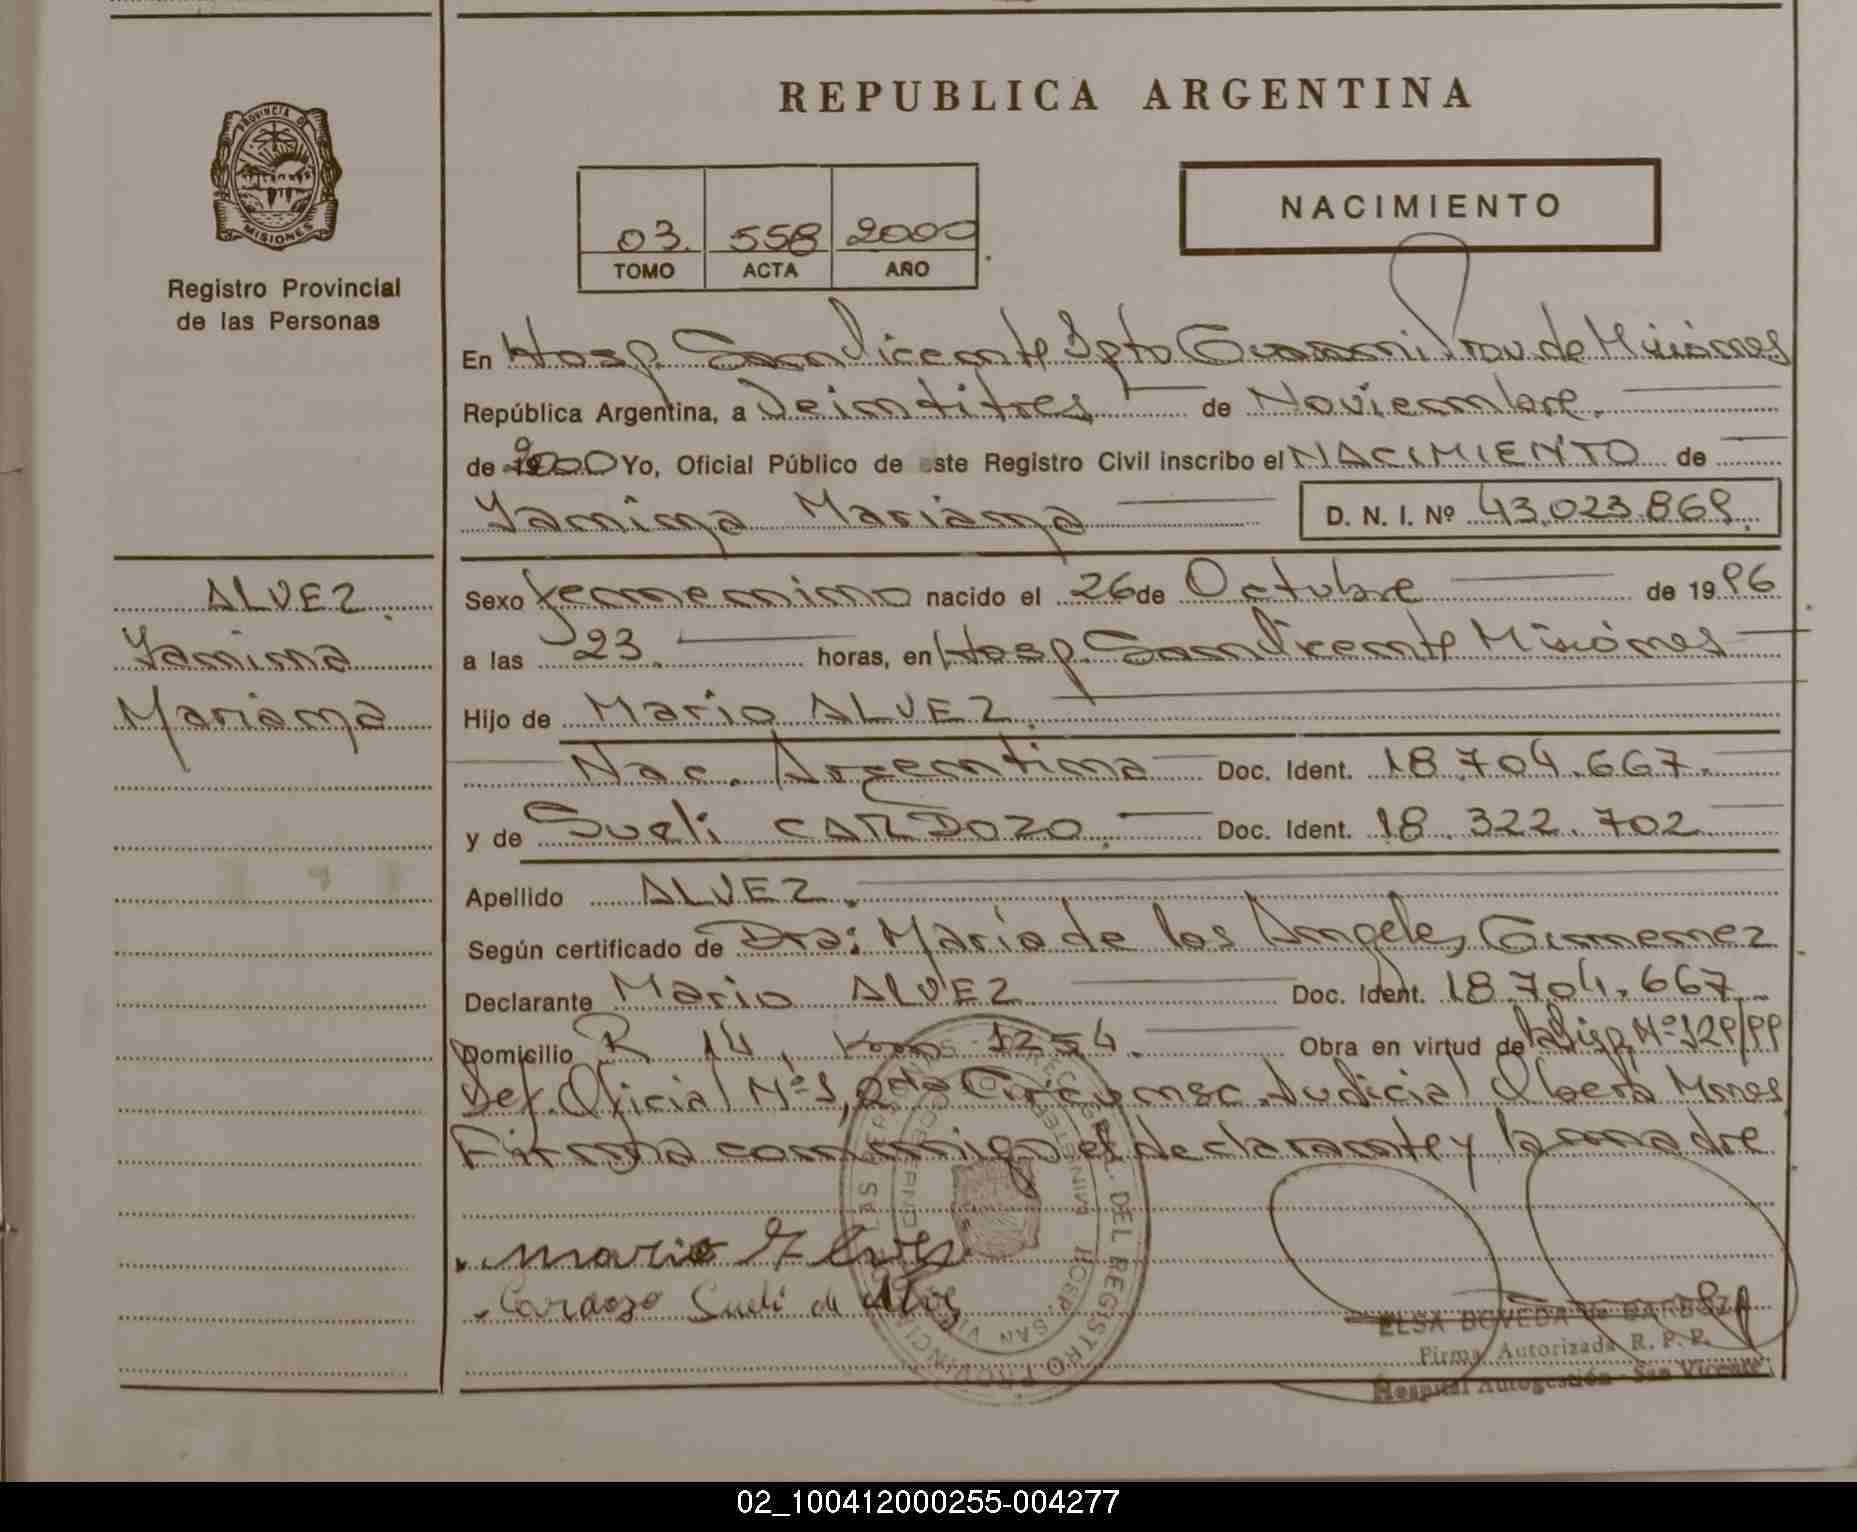 REPUBLICA ARGENTINA
PROVINCIA DE
MISIONES
Registro Provincial
de las Personas
03. 558 2000
TOMO ACTA AÑO
NACIMIENTO
En Hosp. San Vicente Dpto Guarani Prov. de Misiónes
República Argentina, a Veintitres de Noviembre.
de 2000 Yo, Oficial Público de este Registro Civil inscribo el NACIMIENTO de
Yamina Mariana D. N. I. Nº 43.023.869.
ALVEZ.
Yamina
Mariana
Sexo femenino nacido el 26 de Octubre de 1996
a las 23. horas, en Hosp. San Vicente Misiónes
Hijo de Mario ALVEZ.
Nac. Argentina Doc. Ident. 18.704.667.
y de Sueli CARDOZO. Doc. Ident. 18.322.702
Apellido ALVEZ.
Según certificado de Dra: María de los Angeles Gimenez
Declarante Mario ALVEZ Doc. Ident. 18.704.667.
Domicilio R 14, Km 1254. Obra en virtud de la Disp. Nº 129/99
Def. Oficial Nº 1, 2da Circunsc. Judicial Oberá Mnes
Firma conmigo el declarante y la madre
Mario Alves
Cardozo Sueli de
DEL REGISTRO PROVINCIAL
HOSP. SAN
ELSA BOVEDA de BARBOZA
Firma Autorizada R. P. P.
Hospital Autogestión - San Vicente
02_100412000255-004277